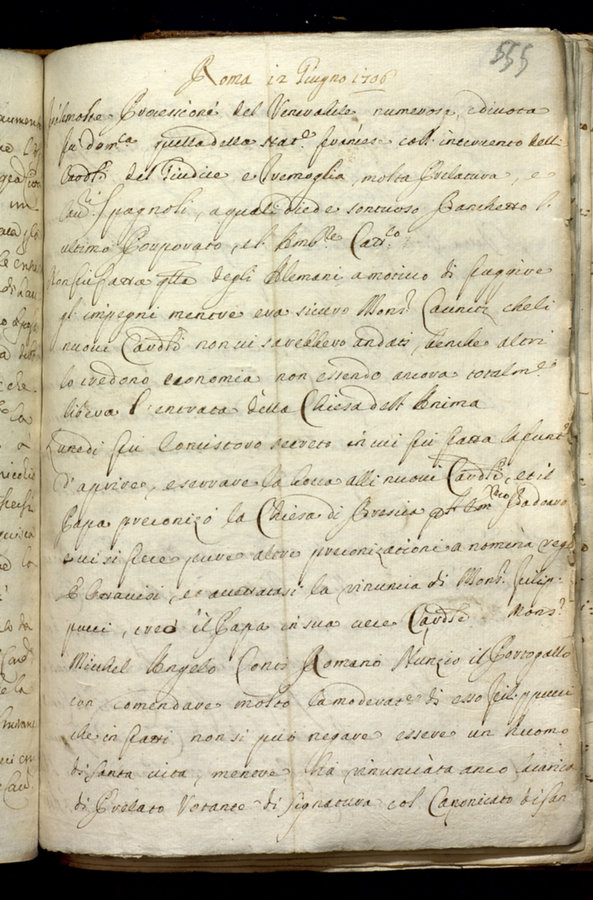 555
Roma 12 Giugno 1706
Processioni del Venerabile numerosa, e divota
fu dom.ca quella della Naz.e francese coll intervento delli
Cardli del Giudice e Tremoglia, molta Prelatura, e
Spagnoli, a quali diede sontuoso Banchetto l
ultimo Porporato, et
Non fù fatta qlla degli Alemani a motivo di fuggire
gl impegni mentre era sicuro Mons.r Caunitz che li
nuovi Cardli non vi sarebbero andati, benche altri
lo credono economia non essendo ancora totalm.e
libera l'entrata della Chiesa dell Anima
Lunedi fù Concistoro secreto in cui fù fatta la funt.e
d'aprire, e serrare la bocca alli nuovi Cardli, et il
Papa preconizò la Chiesa di Brescia Badoaro
e vi si fece pure altre preconizationi a nomina reg.
E Ottavisi, et accettatasi la rinuncia di Mons.r Filip-
pucci, creò il Papa in sua vece Cardle Mons.r
Michel Angelo Conti Romano Nunzio il Portogallo
con comendare molto la moderat.e di esso Filippucci
che in fatti non si può negare essere un huomo
di santa vita, mentre ha rinunciata anco la carica
di Prelato Votante di Signatura col Canonicato di San